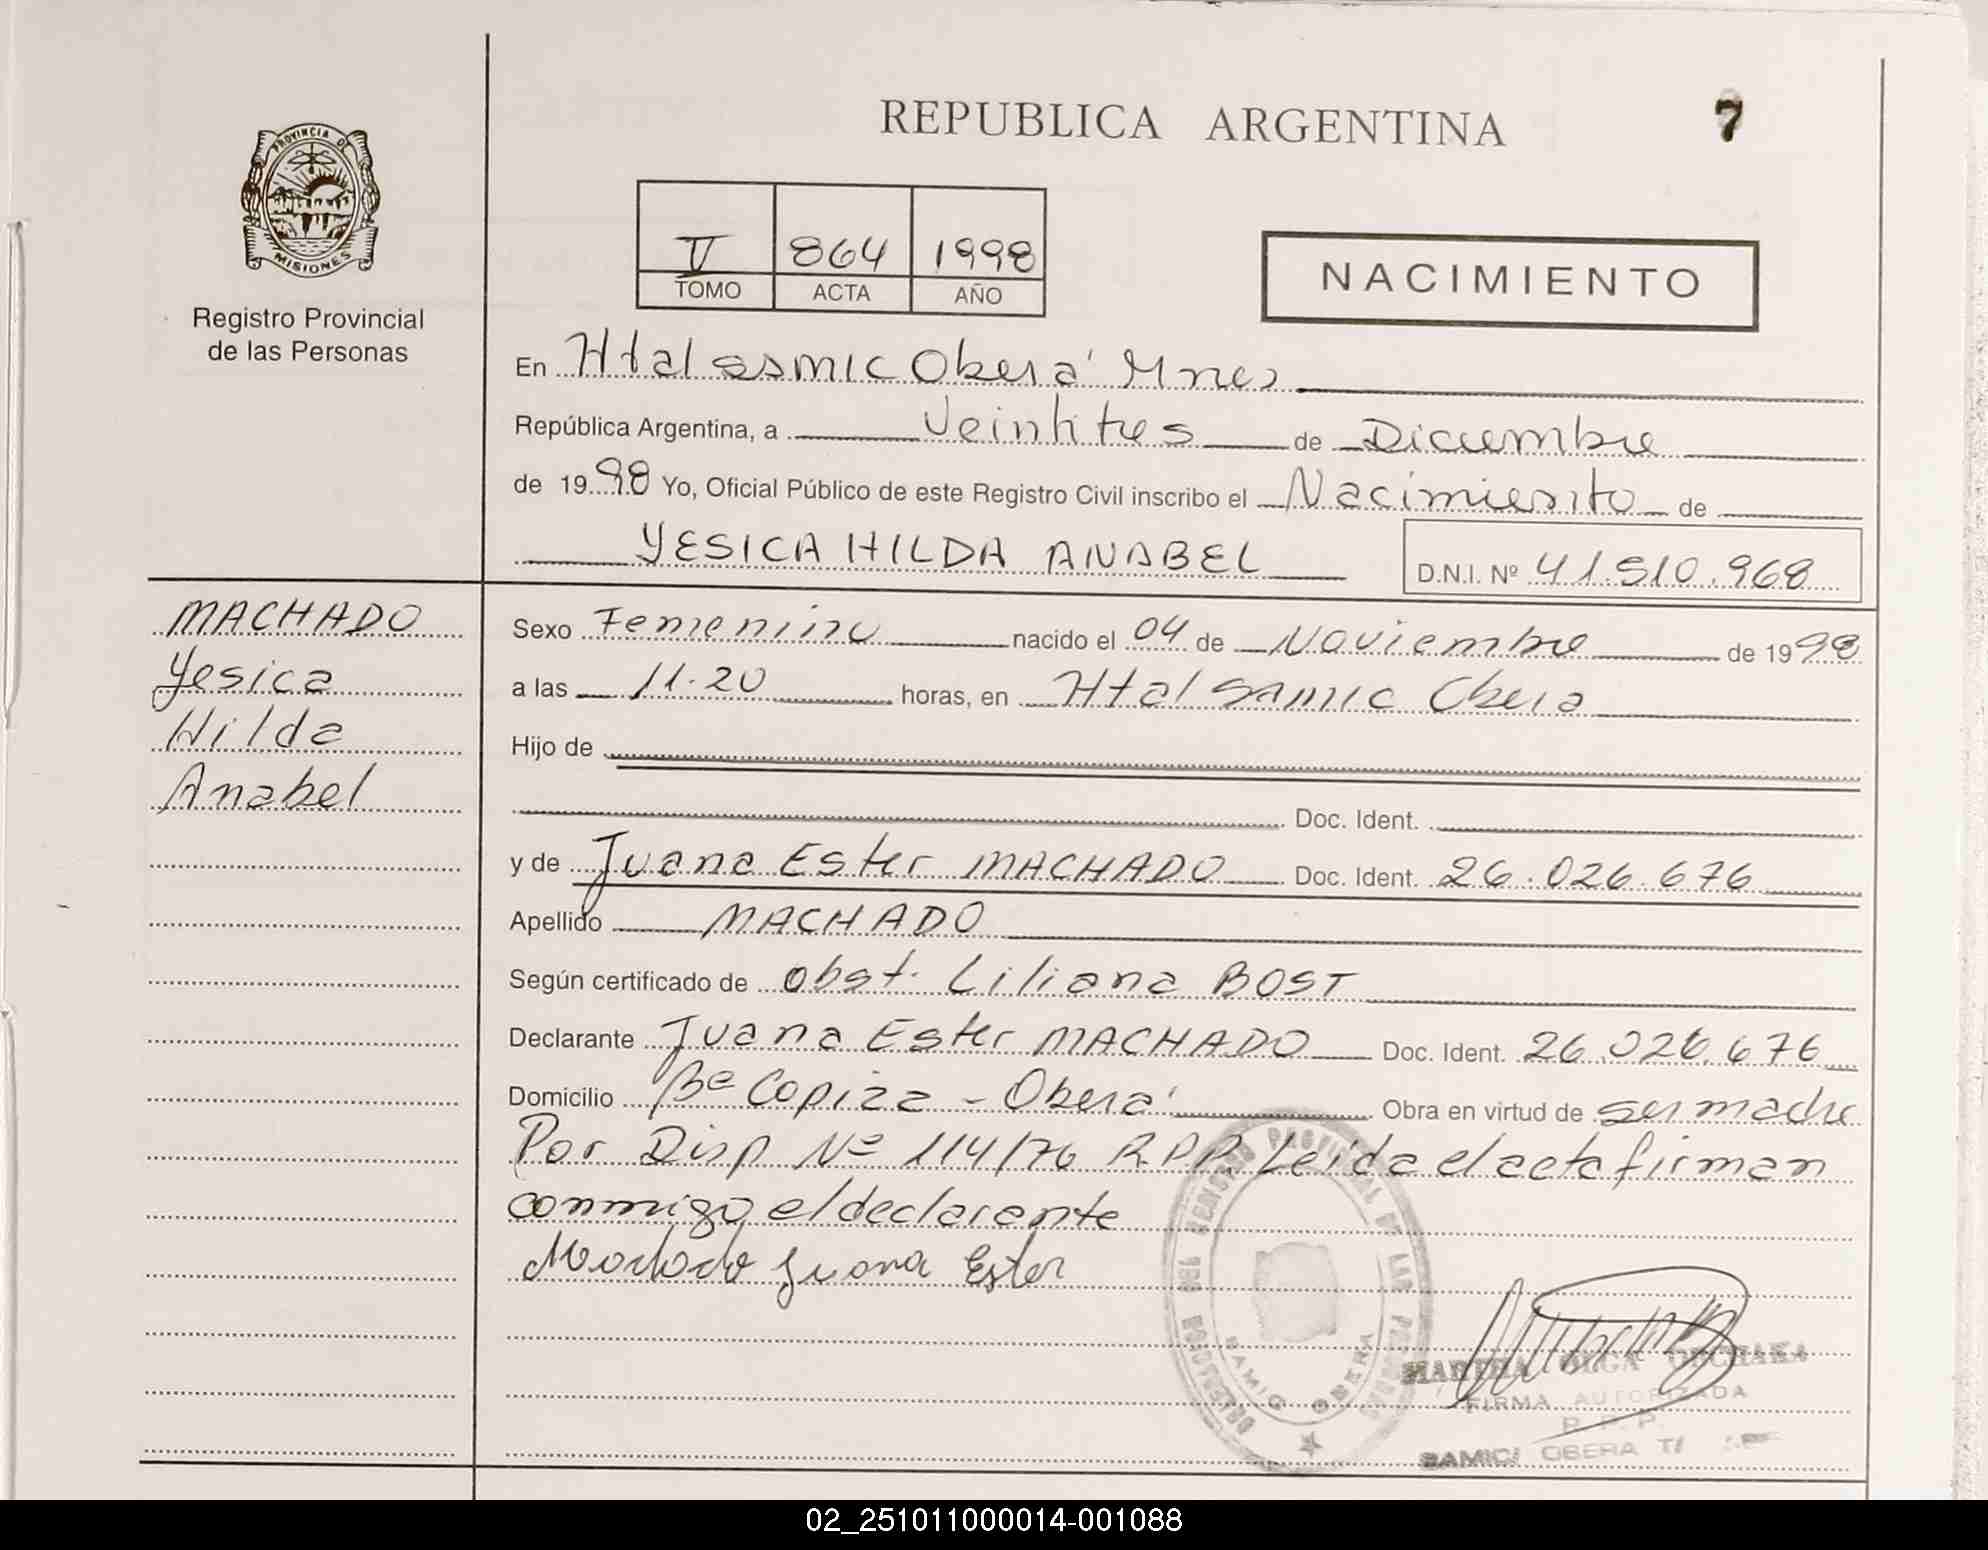 REPUBLICA ARGENTINA
7
PROVINCIA DE
MISIONES
Registro Provincial
de las Personas
V 864 1998
TOMO ACTA AÑO
NACIMIENTO
En Htal samic Oberá Mnes
República Argentina, a Veintitres de Diciembre
de 1998 Yo, Oficial Público de este Registro Civil inscribo el Nacimiento de
YESICA HILDA ANABEL
D.N.I. Nº 41.510.968
MACHADO
Yesica
Hilda
Anabel
Sexo Femenino nacido el 04 de Noviembre de 1998
a las 11.20 horas, en Htal samic Obera
Hijo de
Doc. Ident.
y de Juana Ester MACHADO Doc. Ident. 26.026.676
Apellido MACHADO
Según certificado de obst. Liliana BOST
Declarante Juana Ester MACHADO Doc. Ident. 26.026.676
Domicilio Bº Copiza - Oberá Obra en virtud de ser madre
Por Disp Nº 114/76 RPP. Leida el acta firman
conmigo el declarante
Machado Juana Ester
DELEGACION DEL REGISTRO PROVINCIAL DE LAS PERSONAS
SAMIC OBERA
MARTHA OLGA
FIRMA AUTORIZADA
R. P. P.
SAMIC/ OBERA
02_251011000014-001088